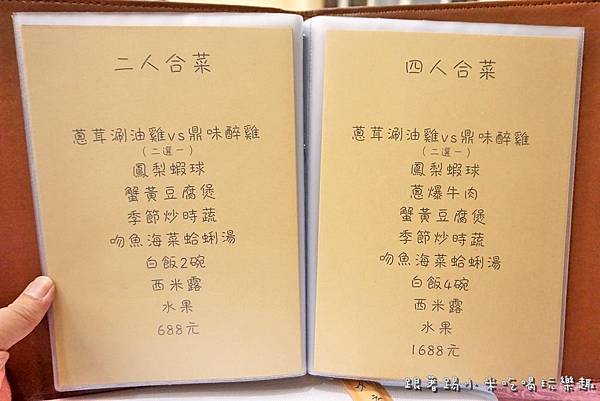 二人合菜
蔥茸涮油雞vs鼎味醉雞
(二選一)
鳳梨蝦球
蟹黃豆腐煲
季節炒時蔬
吻魚海菜蛤蜊湯
白飯2碗
西米露
水果
688元
四人合菜
蔥茸涮油雞vs鼎味醉雞
(二選一)
鳳梨蝦球
蔥爆牛肉
蟹黃豆腐煲
季節炒時蔬
吻魚海菜蛤蜊湯
白飯4碗
西米露
水果
1688元
跟著踢小米吃喝玩樂趣